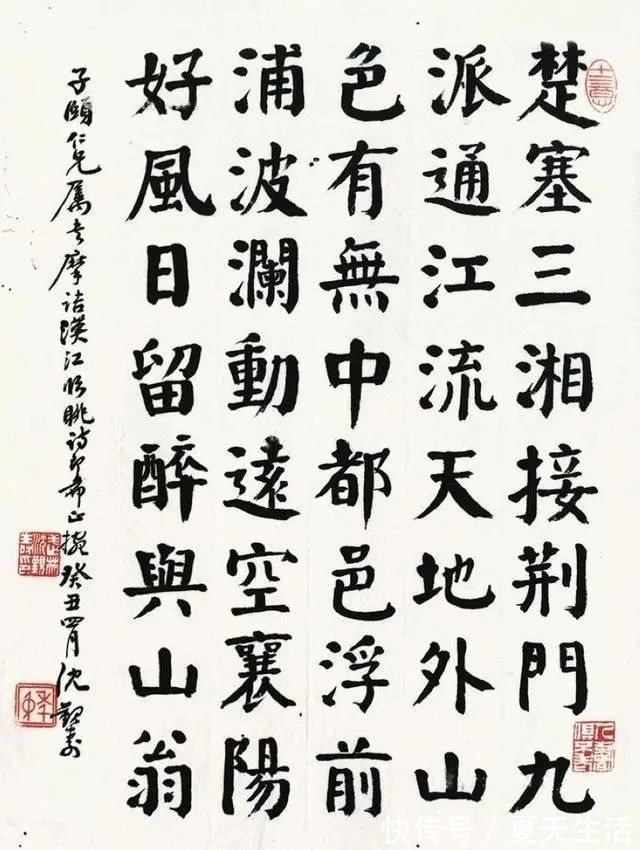 楚塞三湘接荆門九
派通江流天地外山
色有無中都邑浮前
浦波瀾動遠空襄陽
好風日留醉與山翁
子頤仁兄屬書摩詰漢江臨眺詩即希正捥癸丑四月沈觀壽
快传号 / 夏天生活